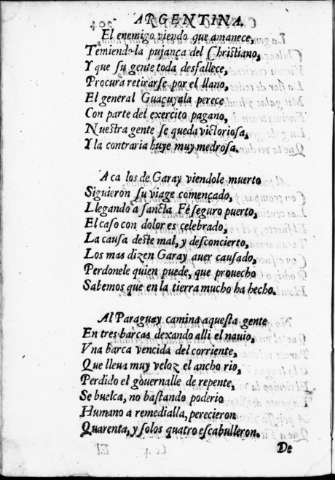 ARGENTINA.
El enemigo viendo que amanece,
Temiendo la pujança del Christiano,
Y que su gente toda desfallece,
Procura retirarse por el llano,
El general Guaçuyala perece
Con parte del exercito pagano,
Nuestra gente se queda victoriosa,
Y la contraria huye muy medrosa.
Aca los de Garay viendole muerto
Siguieron su viage començado,
Llegando a sancta Fè seguro puerto,
El caso con dolor es celebrado,
La causa deste mal, y desconcierto,
Los mas dizen Garay auer causado,
Perdonele quien puede, que prouecho
Sabemos que en la tierra mucho ha hecho.
Al Paraguay camina aquesta gente
En tres barcas dexando alli el nauio,
Vna barca vencida del corriente,
Que lleua muy veloz el ancho rio,
Perdido el gouernalle de repente,
Se buelca, no bastando poderio
Humano a remedialla, perecieron
Quarenta, y solos quatro escabulleron.
De